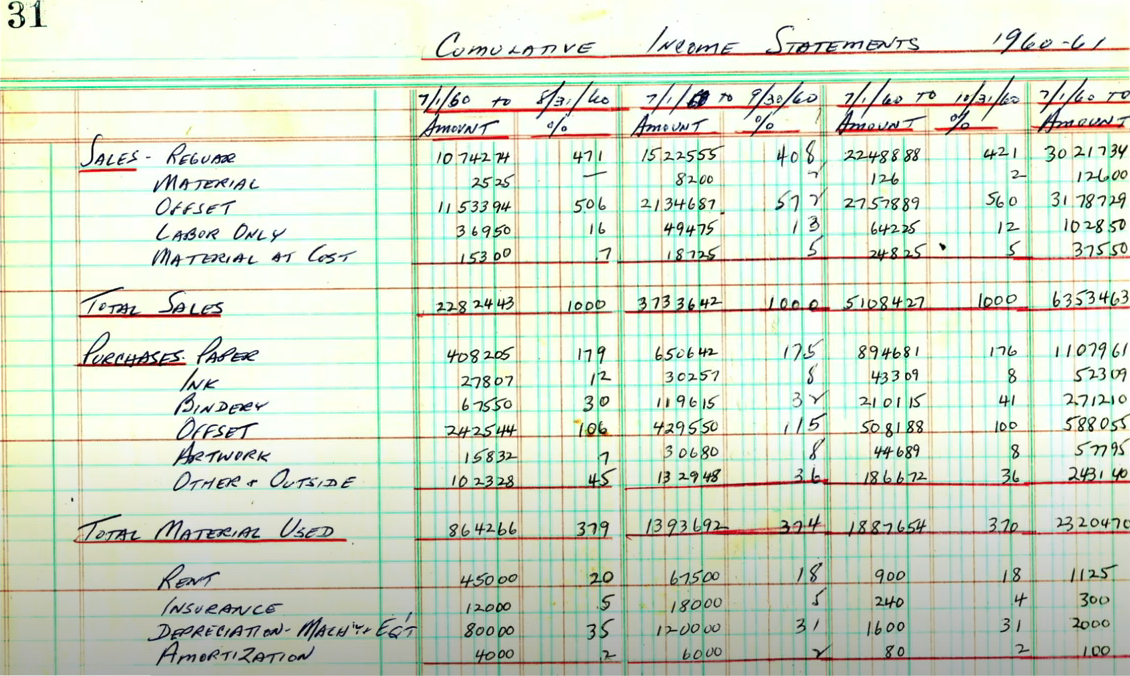 31
CUMULATIVE INCOME STATEMENTS 1960-61
7/1/60 to 8/31/60 7/1/60 to 9/30/60 7/1/60 to 10/31/60 7/1/60 to
AMOUNT % AMOUNT % AMOUNT % AMOUNT
SALES - REGUAR 1074274 471 1522555 408 2248888 421 3021734
MATERIAL 2525 — 8200 2 126 2 12600
OFFSET 1153394 506 2134687 572 2757889 560 3178729
LABOR ONLY 36950 16 49475 13 64225 12 102850
MATERIAL AT COST 15300 7 18725 5 24825 5 37550
TOTAL SALES 2282443 1000 3733642 1000 5108427 1000 6353463
PURCHASES. PAPER 408205 179 650642 175 894681 176 1107961
INK 27807 12 30257 8 43309 8 52309
BINDERY 67550 30 119615 32 210115 41 271210
OFFSET 242544 106 429550 115 508188 100 588055
ARTWORK 15832 7 30680 8 44689 8 57795
OTHER + OUTSIDE 102328 45 132948 36 186672 36 243140
TOTAL MATERIAL USED 864266 379 1393692 374 1887654 370 2320470
RENT 45000 20 67500 18 900 18 1125
INSURANCE 12000 5 18000 5 240 4 300
DEPRECIATION - MACH'Y + EQ'T 80000 35 120000 31 1600 31 2000
AMORTIZATION 4000 2 6000 2 80 2 100